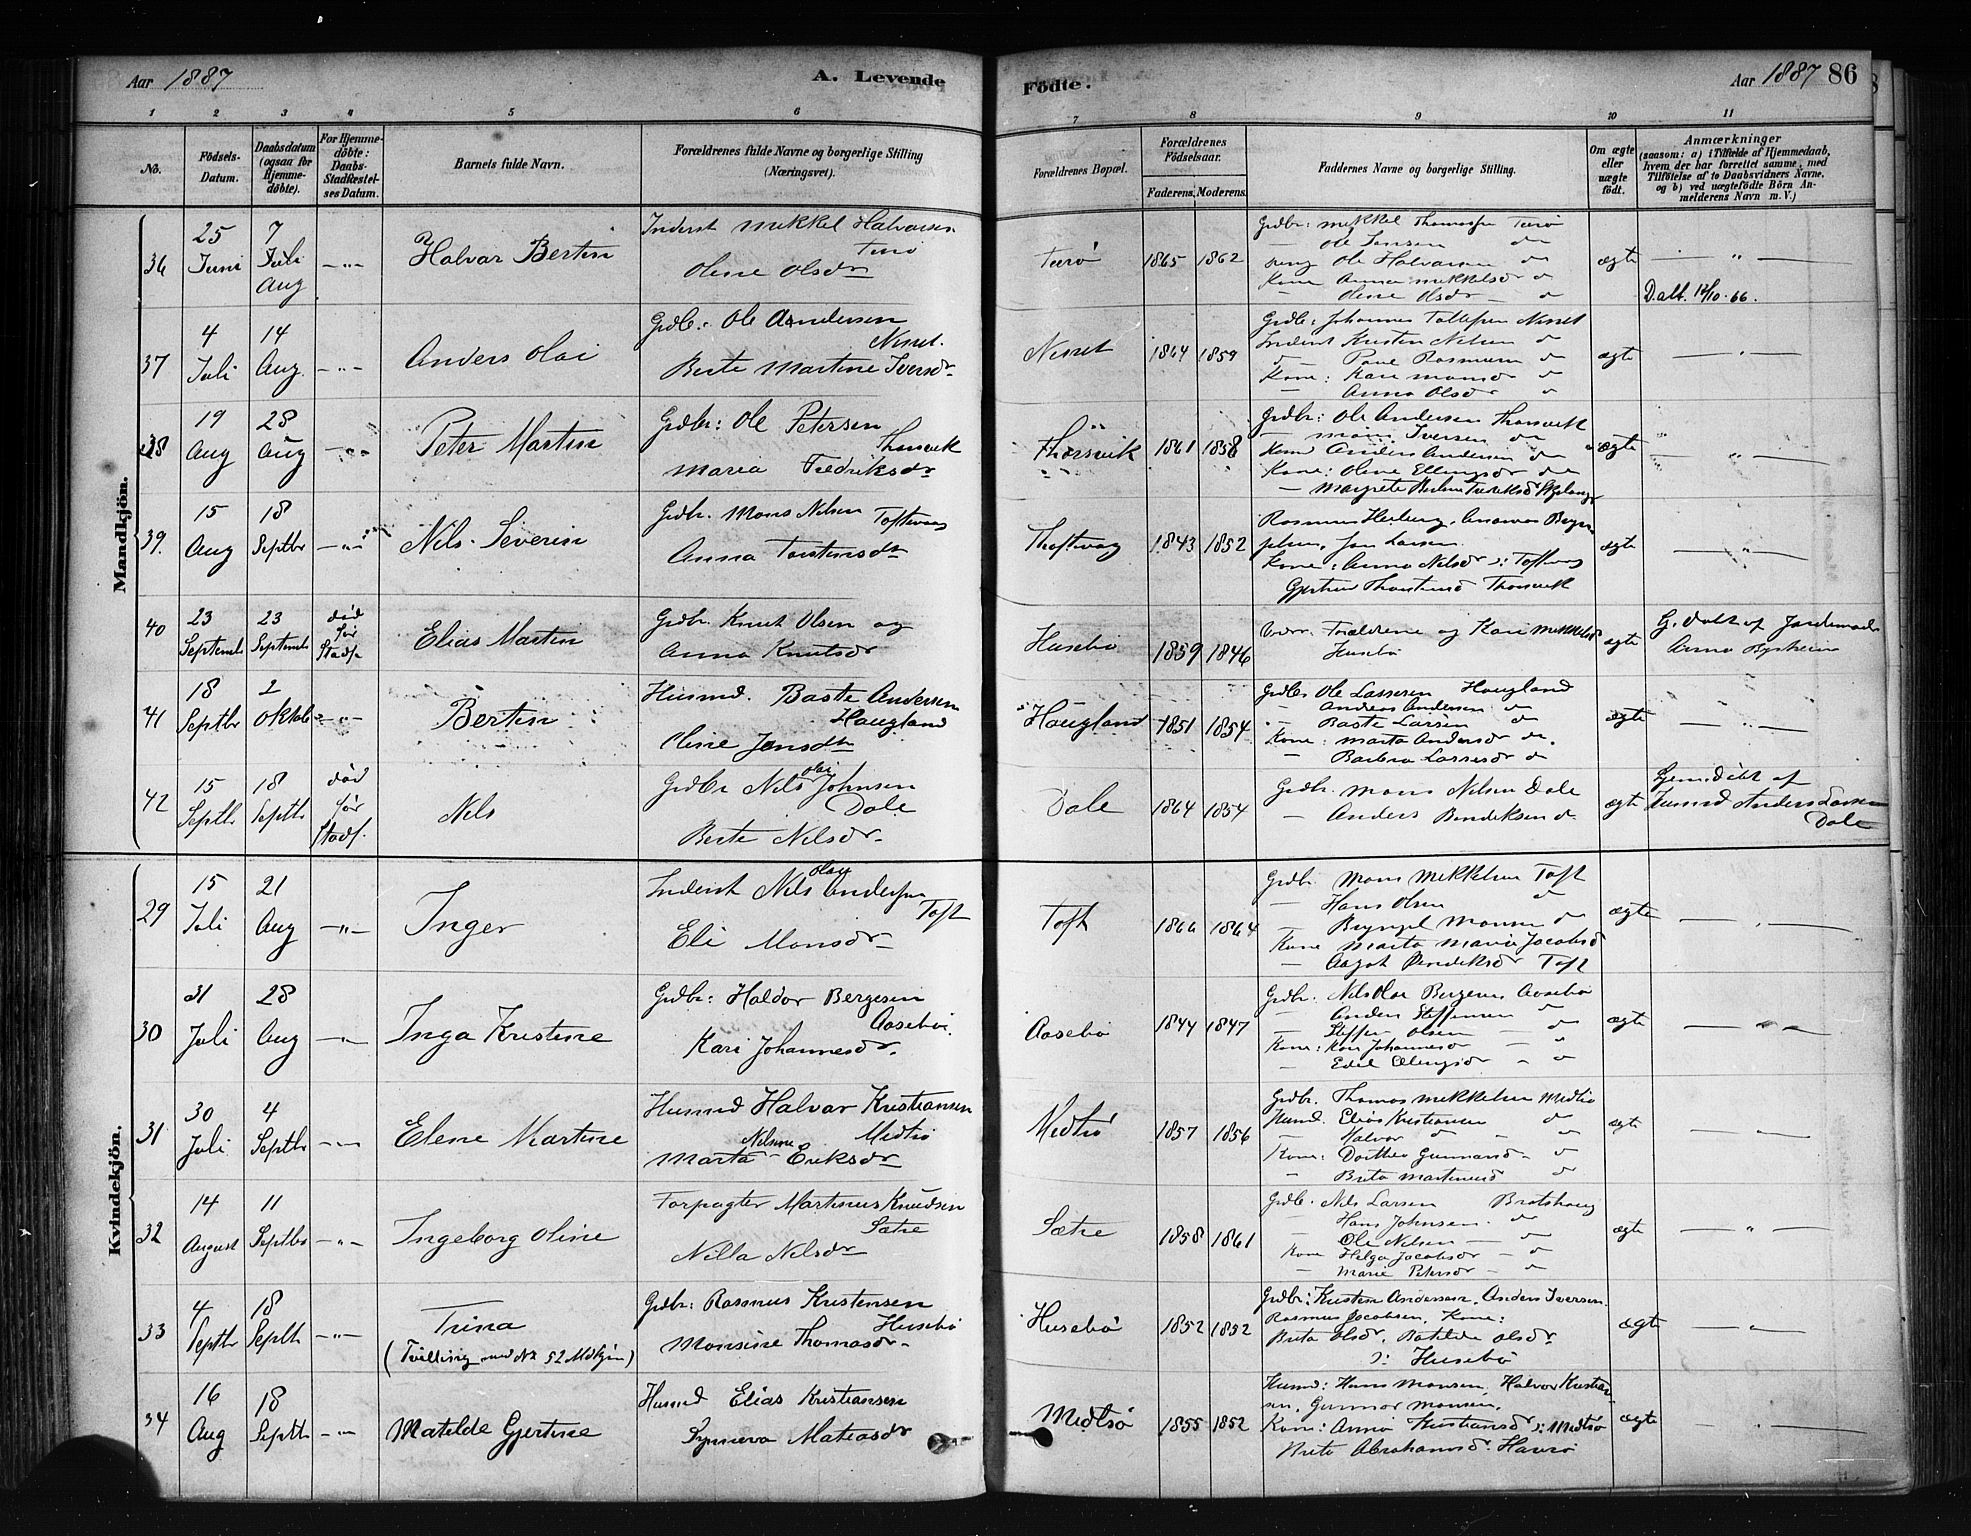 Aar 1887
A. Levende
Födte.
Aar 1887 86
1 2 3 4 5 6 7 8 9 10 11
No.
Födsels-Datum.
Daabsdatum (ogsaa for Hjemme-döbte).
For Hjemme-döbte: Daabs-Stadfæstel-ses Datum.
Barnets fulde Navn.
Forældrenes fulde Navne og borgerlige Stilling (Næringsvei).
Forældrenes Bopæl.
Forældrenes Födselsaar.
Faderens. Moderens.
Faddernes Navne og borgerlige Stilling.
Om ægte eller uægte födt.
Anmærkninger
(saasom: a) i Tilfælde af Hjemmedaab,
hvem der har forrettet samme, med
Tilföielse af to Daabsvidners Navne,
og b) ved uægtefödte Börn An-
melderens Navn m. V.)
Mandkjön.
36 25 Juni 7 Juli Aug Halvar Bertin
Inderst Mikkel Halvorsen
Turö
Oline Olsdr
Turö 1865 1862
Grdbr: Mikkel Thomassen Turö
Ole Jensen do
Ole Halvorsen do
Kone Anna Mikkelsdr do
Oline Olsdr do
ægte
Døbt. 12/10-66.
37 4 Juli 14 Aug. Anders Olai
Grdb.: Ole Andersen
Nesset.
Berte Martine Iversdr
Nesset 1864 1859
Grdb: Johannes Tollefsen Nesset
Inderst Kristen Nilsen do
Rasmussen do
Kone: Kari Monsdr do
Anna Olsdr do
ægte
38 19 Aug 28 Aug Peter Martin
Grdbr: Ole Petersen
Thorsvik
Maria Fredriksdr
Thorsvik 1861 1858
Grdbr: Ole Andersen Thorsvik
Mons Iversen do
Anders Andersen do
Kone: Oline Ellingsdr do
ægte
39. 15 Aug 18 Septbr Nils Severin
Grdbr. Mons Nilsen Toftevaag
Anna Torstensdr
Thoftevaag 1843 1852
Rasmus Herberg,
Jon Larsen
Kone: Anna Nilsdr ɔ: Toftevaag
Thorsvik
ægte
40 23 Septemb 23 Septemb død før Stadf. Elias Martin
Grdbr. Knut Olsen og
Anna Knutsdr
Husebö 1859 1846
Forældrene og Kari Mikkelsdr
Husebö
ægte
G. døbt af Jordemoder
Anna
41 18 Septbr 2 Oktob Bertin
Husmd. Baste Andersen
Haugland
Oline Jensdr
Haugland 1851 1854
Grdbr Ole Lassesen Haugland
Andreas Andersen do
Baste Larsen do
Kone: Marta Andersdr do.
Barbra Lassesdr do
ægte
42 15 Septbr 18 Septbr død før Stadf. Nils
Grdbr Nils Olai Johnsen
Dale
Berte Nilsdr.
Dale 1864 1854
Grdbr. Mons Nilsen Dale
Anders Bendiksen do.
ægte
Hjemdøbt af
Husmd Anders Larsen
Dale
Kvindekjön.
29 15 Juli 21 Aug Inger
Inderst Nils Olai Anderssen
Toft
Eli Monsdr
Toft 1866 1864
Grdbr. Mons Mikkelsen Toft
Hans Olsen do
Bryngel Monsen do
Kone Marta Marie Jacobsdr
Aagot Bendiksdr Toft
ægte
30 31 Juli 28 Aug Inga Kristine
Grdbr: Haldor Bergesen
Aasebö.
Kari Johannesdr.
Aasebö 1844 1847
Grdbr. Nils Olai Bergesen Aasebö
Anders Steffensen do
Steffen Olsen do
Kone: Kari Johannesdr do
Edel Ellingsdr do
ægte
31 30 Juli 4 Septbr Elene Martine
Husmd Halvar Kristiansen
Medtsö
Marta Nilsine Eriksdr
Medtsö 1857 1856
Grdbr. Thomas Mikkelsen Medtsö
Husmd. Elias Kristiansen do
Halvor do do
Kone: Dorthea Gunnarsd do
Brita Martinusd do
ægte
32 14 August 11 Septbr Ingeborg Oline
Forpagter Martinus Knudsen
Sætre
Nilla Nilsdr
Sætre 1858 1861
Grdb. Nils Larsen Bratshaug
Hans Johnsen do
Ole Nilsen do
Kone Helga Jacobsdr do
Marie Petersdr do
ægte
33 4 Septbr 18 Septbr Trina
(Tvilling med No 52 Mdkjøn)
Grdbr: Rasmus Kristensen
Husebö
Monsine Thomasdr.
Husebö 1852 1852
Grdbr: Kristen Andersen, Anders Iversen
Rasmus Jacobsen, Kone:
Brita Olsdr, Batilde Olsdr
ɔ: Husebö
ægte
34 16 Aug 18 Septbr Matilde Gjertine
Husmd Elias Kristiansen
Synneva Matiasdr
Medtsö 1855 1852
Husmd: Hans Monsen, Halvor Kristian
sen, Gunnar Monsen,
Kone: Anna Kristiansdr ɔ: Medtsö
Brita Abrahamsd. Hanö
ægte